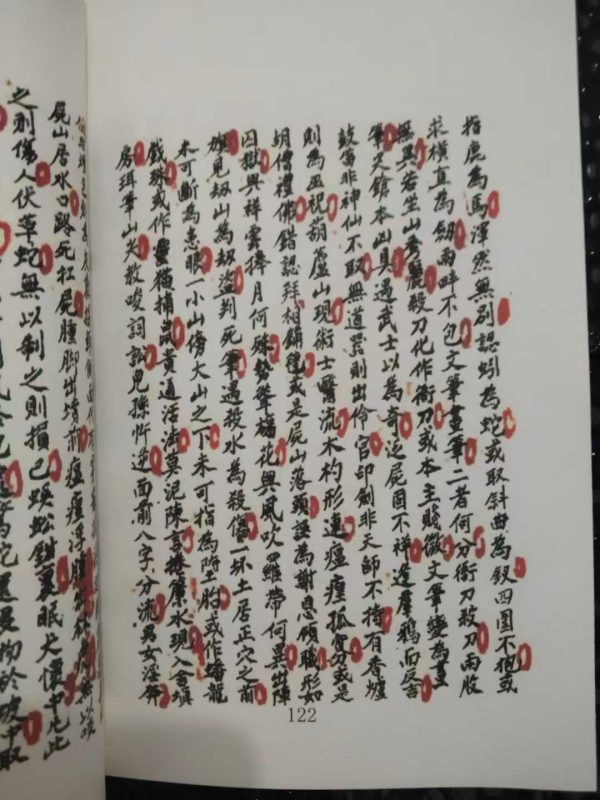 指鹿為馬渾然無別認蚓為蛇或取斜曲為釵四圍不抱或
求橫直為劍兩畔不包文筆畫筆二者何分衙刀殺刀兩般
無異若坐山秀麗殺刀化作衙刀或本主賤微文筆變為畫
筆尖鎗本凶具遇武士以為奇屍固不祥逢群鴉而反吉
鼓笛非神仙不取無道器則出伶官印劍非天師不持有香爐
則為巫祝葫蘆山現術士醫流木杓形連瘟㾮孤寡或是
胡僧禮佛錯認拜相鋪氈或是屍山落頭誤為謝恩領職形如
囚獄與祥雲捧月何殊勢聳楊花與風吹羅帶何異出陣
旗見劫山為劫盜判死筆遇殺水為殺傷一坏土居正穴之前
未可斷為患眼一小山傍大山之下未可指為墮胎或作蟠龍
戲珠或作靈猫捕鼠貴通活法莫泥陳言捲簾水現入舍填
房珥筆山尖教唆詞訟兒孫忤逆面前八字分流男女淫奔
122
屍山居水口路死扛屍腫脚出墳前瘟㾮浮腫
之則傷人伏草蛇無以制之則損己蜈蚣鉗裏眠犬懷中凡此